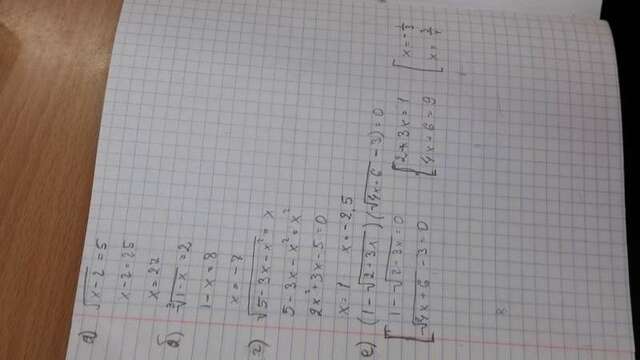 а) √(x-2) = 5
x-2=25
x=27
б) ³√(1-x) = 2
1-x=8
x=-7
г) √(5-3x-x²) = x
5-3x-x²=x²
2x²+3x-5=0
x=1 x=-2,5
е) (1-√(2+3x))(√(4x+6)-3)=0
[ 1-√(2-3x)=0 [ 2+3x=1 [ x=-1/3
√(4x+6)-3=0 4x+6=9 x=3/4